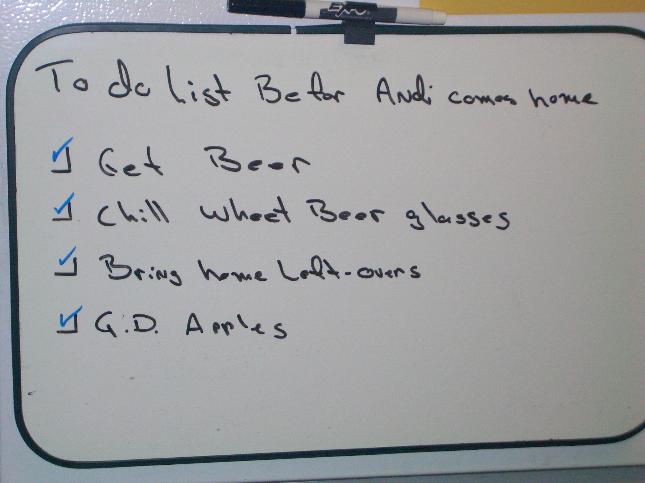 To do list Befor Andi comes home
Get Beer
Chill wheet Beer glasses
Bring home Left-overs
G.D. Apples